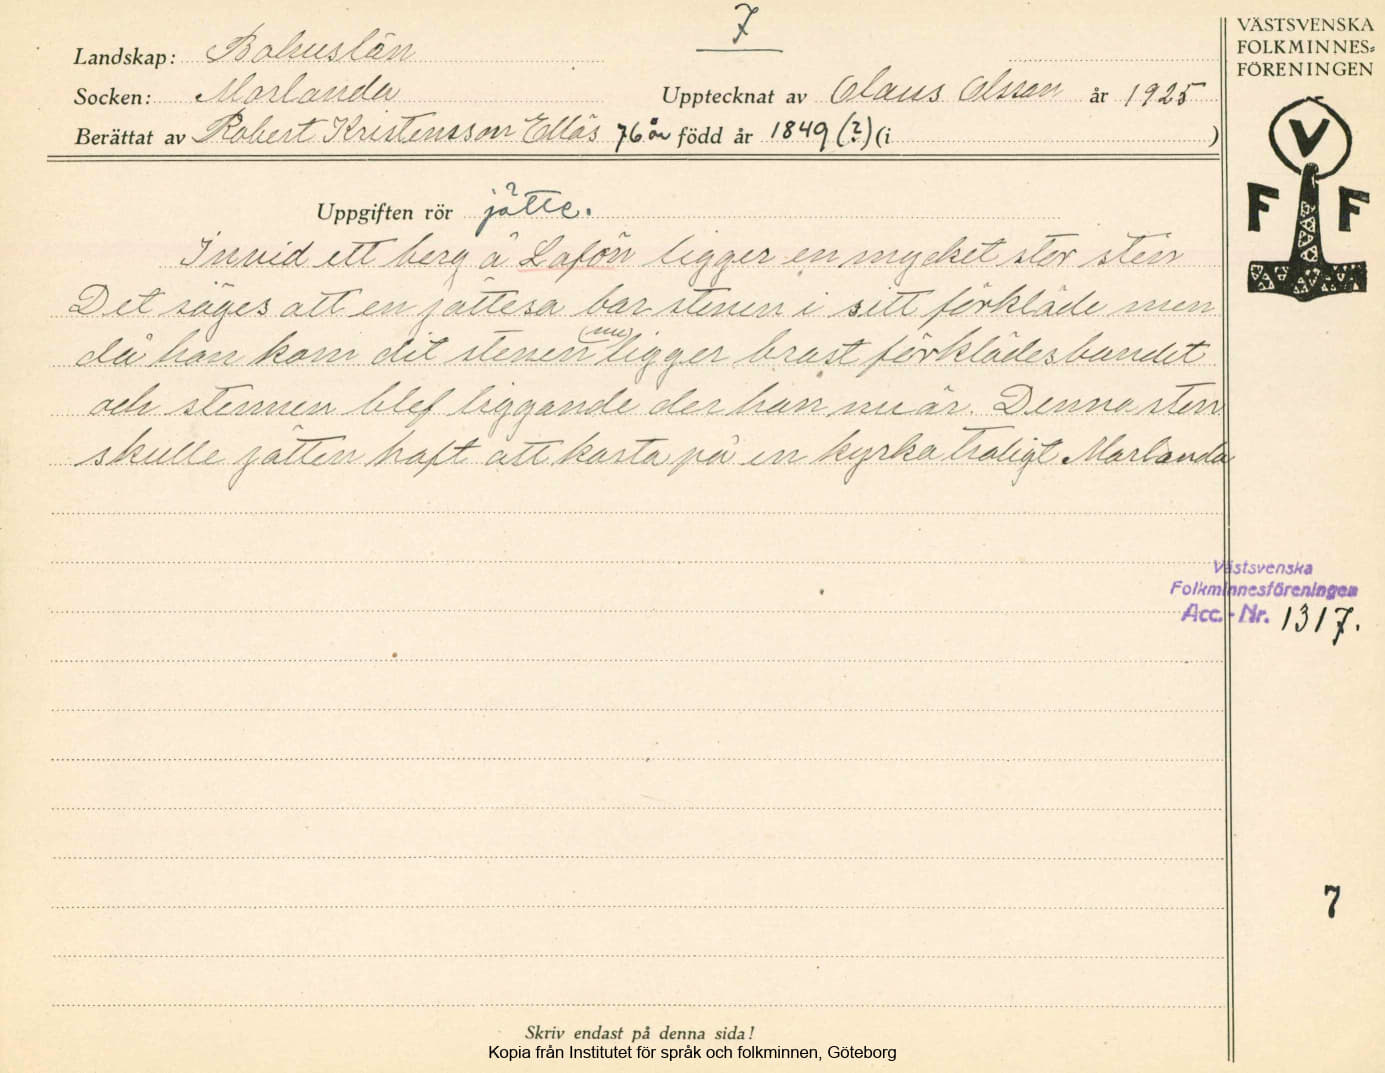 7
VÄSTSVENSKA
FOLKMINNES=
FÖRENINGEN
V
F F
Landskap: Bohuslän
Socken: Morlanda Upptecknat av Claus Olsson år 1925
Berättat av Robert Kristensson Ellös 76 år född år 1849 (?) (i )
Uppgiften rör jätte.
Invid ett berg å Lafön ligger en mycket stor sten
Det säges att en jättesa bar stenen i sitt förkläde men
då hon kom dit stenen (nu) ligger brast förklädesbandet
och stennen blef liggande der han nu är. Denna sten
skulle jätten haft att kasta på en kyrka troligt Morlanda
Västsvenska
Folkminnesföreningen
Acc.-Nr. 1317.
7
Skriv endast på denna sida!
Kopia från Institutet för språk och folkminnen, Göteborg